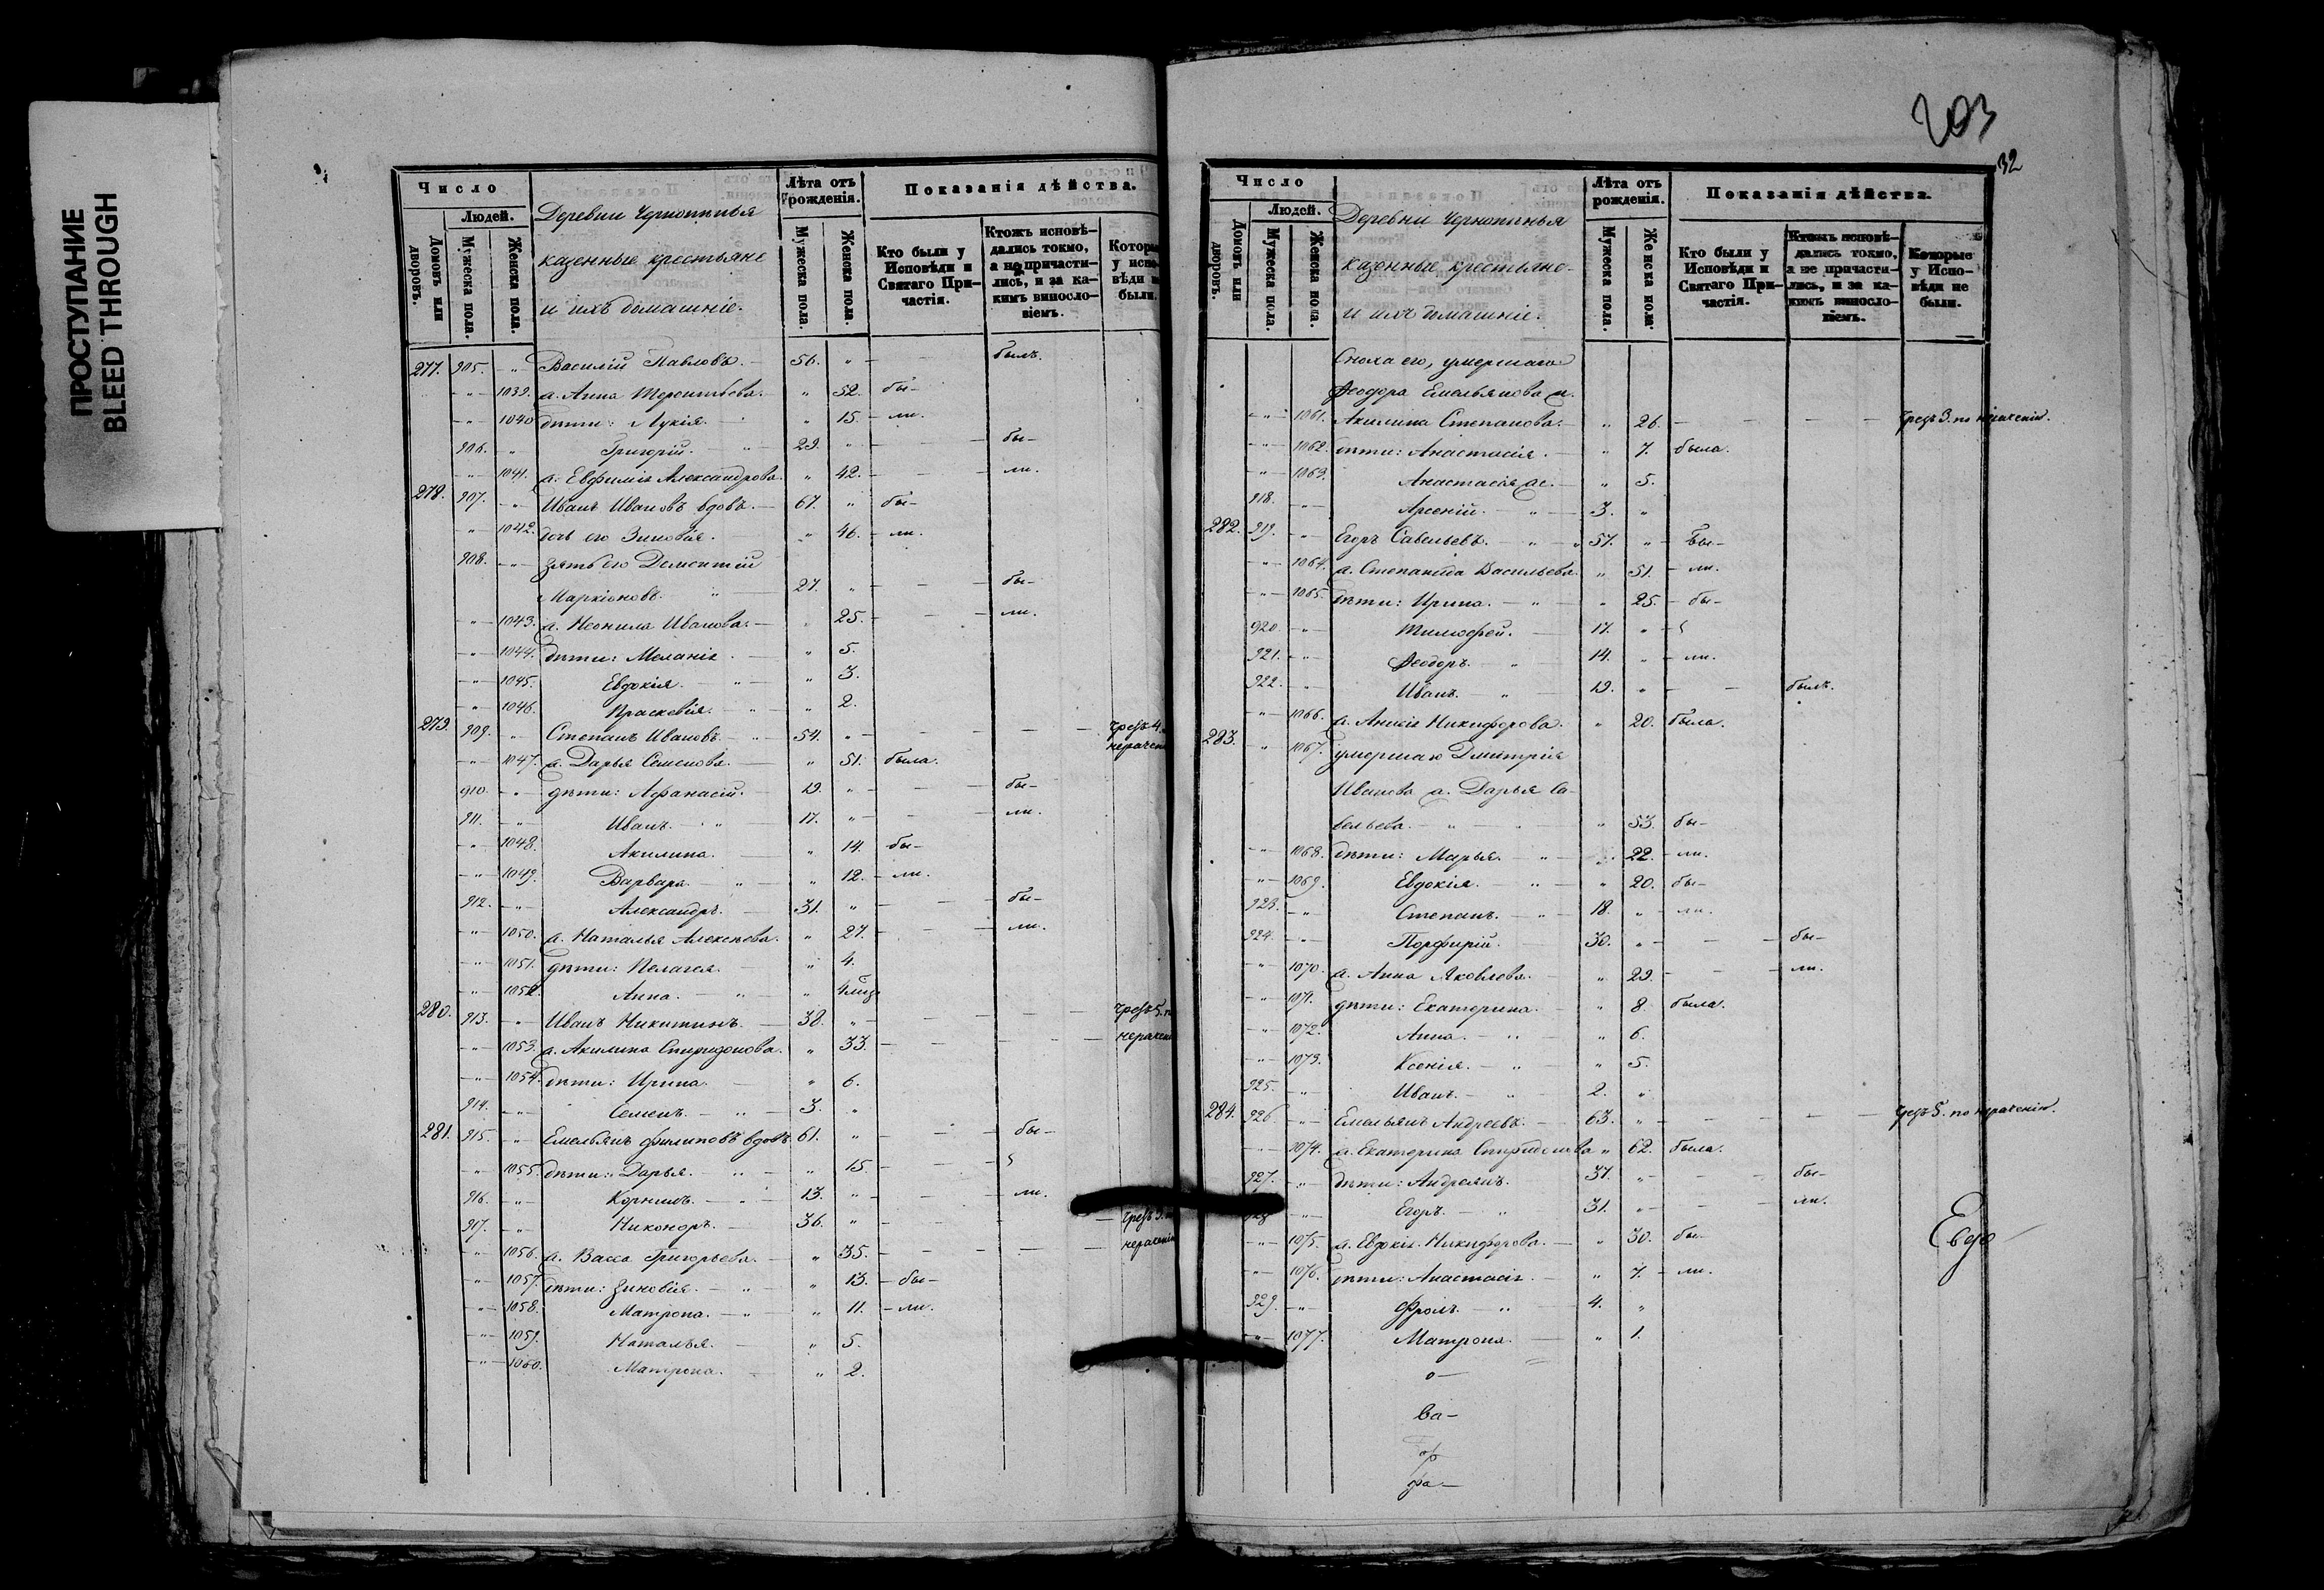 ПРОСТУПАНИЕ
BLEED THROUGH
Число
Людей.
Домовъ или дворовъ.
Мужеска пола.
Женска пола.
Деревни
казенные крестьяне
и ихъ домашніе.
Лѣта отъ рожденія.
Мужеска пола.
Женска пола.
Показанія дѣйства.
Кто были у Исповѣди и Святаго Причастія.
Ктожъ исповѣдались токмо, а не причастились, и за какимъ винословіемъ.
277. 905. " Василій Павловъ. 56. " былъ.
" 1039. а. Анна 52. бы-
" 1040 дѣти: Лукія. " 15. ли.
906. " Григорій. 29. " бы-
" 1041. а. Евфимія Александрова. " 42. ли.
278. 907. " Иванъ Ивановъ вдовъ. 67. " бы-
" 1042. его Зиновія. " 46. ли.
908. " зять его Дементій
Маркіоновъ. 27. " бы-
" 1043. а. Неонила Иванова. " 25. ли.
" 1044. дѣти: Меланія " 5.
" 1045. Евдокія. " 3.
" 1046. Праскевія. " 2.
279. 909. " Степанъ Ивановъ. 54. " чрезъ 4.
" 1047. а. Дарья Семенова. " 51. была.
910. " дѣти: Афанасій. 19. " бы-
911. " Иванъ. 17. " ли.
" 1048. Акилина. " 14. бы-
" 1049. Варвара. " 12. ли.
912. " Александръ. 31. " бы-
" 1050. а. Наталья Алексѣева. " 27. ли.
" 1051. дѣти: Пелагея. " 4.
" 1052. Анна. "
280. 913. " Иванъ Никитинъ. 38. " чрезъ 5.
" 1053. а. Акилина Спиридонова. " 33.
" 1054. дѣти: Ирина. " 6.
914. " Семенъ. 3. "
281. 915. " Емельянъ Филиповъ вдовъ. 61. " бы-
" 1055. дѣти: Дарья. " 15.
916. " Корнилъ. 13. " ли.
917. " Никоноръ. 36. " чрезъ 3.
" 1056. а. Васса Григорьева. " 35.
" 1057. дѣти: Зиновія. " 13. бы-
" 1058. Матрона. " 11. ли.
" 1059. Наталья. " 5.
" 1060. Матрона. " 2.
203
32
Число
Людей.
Домовъ или дворовъ.
Мужеска пола.
Женска пола.
Деревни
казенные крестьяне
и ихъ домашніе.
Лѣта отъ рожденія.
Мужеска пола.
Женска пола.
Показанія дѣйства.
Кто были у Исповѣди и Святаго Причастія.
Ктожъ исповѣдались токмо, а не причастились, и за какимъ винословіемъ.
Которые у Исповѣди не были.
Сноха его, умершаго
Феодора Емельянова а.
" 1061. Акилина Степанова. " 26. чрезъ 3. по нераченію.
" 1062. дѣти: Анастасія. " 7. была.
" 1063. Анастасія " 5.
918. " Арсеній. 3. "
282. 919. " Егоръ Савельевъ. 57. " бы-
" 1064. а. Степанида Васильева. " 51. ли.
" 1065. дѣти: Ирина. " 25. бы-
920. " Тимофей. 17. "
921. " Феодоръ. 14. " ли.
922. " Иванъ. 19. " былъ.
" 1066. а. Анисія Никифорова. " 20. была.
283. " 1067. умершаго Дмитрія
Иванова а. Дарья Са-
вельева. " 53. бы-
" 1068. дѣти: Марья. " 22. ли.
" 1069. Евдокія. " 20. бы-
923. " Степанъ. 18. " ли.
924. " Порфирій. 30. " бы-
" 1070. а. Анна Яковлева. " 29. ли.
" 1071. дѣти: Екатерина. " 8. была.
" 1072. Анна. " 6.
" 1073. Ксенія. " 5.
925. " Иванъ. 2. "
284. 926. " Емельянъ Андреевъ. 63. " чрезъ 5. по нераченію.
" 1074. а. Екатерина Спиридонова " 62. была.
927. " дѣти: Андреянъ. 37. " бы-
928 " Егоръ. 31. " ли.
" 1075. а. Евдокія Никифорова. " 30. бы-
Евдо
" 1076. дѣти: Анастасія. " 7. ли.
929. " Фролъ. 4. "
" 1077. Матрона. " 1.
о-
ва-